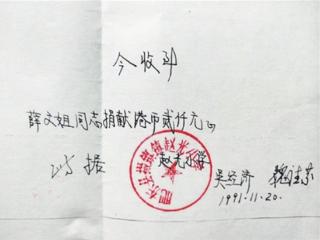 今收到
薛文姐同志捐献港币贰仟元正
此据
赵光小学
吴经济
1991.11.20.